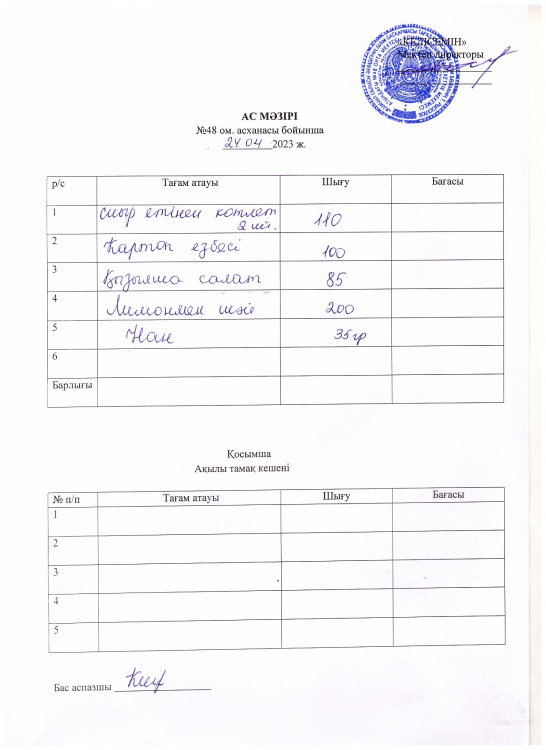 «КЕЛІСЕМІН»
Мектеп директоры
АС МӘЗІРІ
№48 ом. асханасы бойынша
24 04 2023 ж.
р/с Тағам атауы Шығу Бағасы
1 сиыр етінен котлет 110
2 Картоп езбесі 100
3 Қызылша салат 85
4 Лимонмен шәй 200
5 Нан 35 гр
6
Барлығы
Қосымша
Ақылы тамақ кешені
№ п/п Тағам атауы Шығу Бағасы
1
2
3
4
5
Бас аспазшы